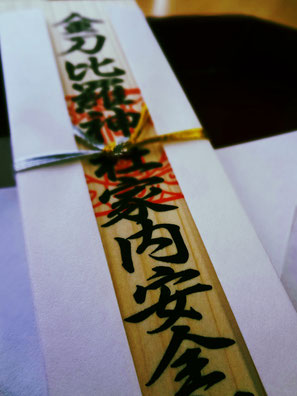 金刀比羅神社家内安全